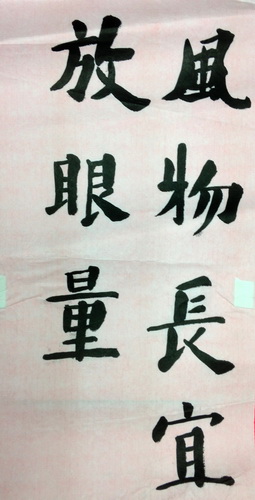 風物長宜
放眼量